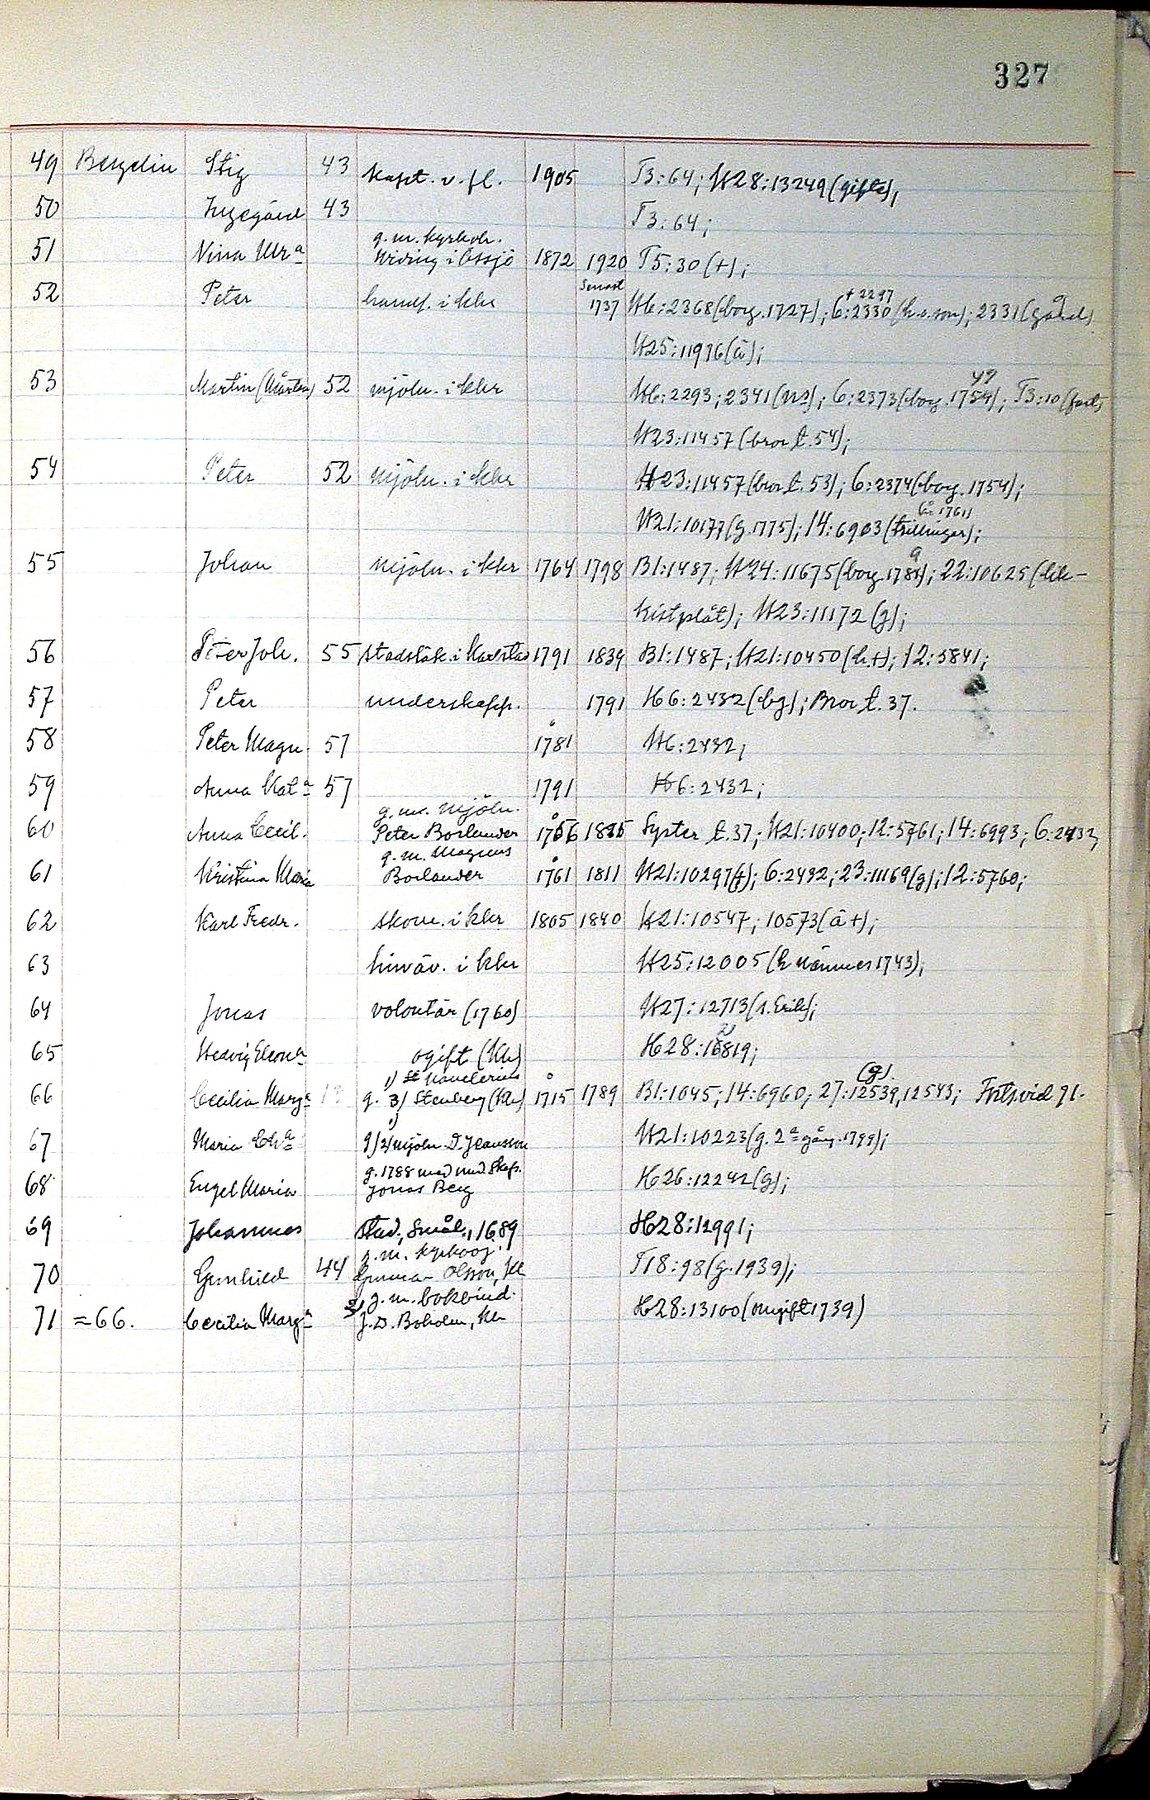 327
49 Bergelin Stig 43 kapt. v. fl. 1905 T3:64; H28:13249 (gifte);
50 Ingegärd 43 T3:64;
g. m. kyrkoh.
51 Nina Mra 1872 1920 T5:30 (+);
52 Peter handl. i khr senast 1737 H6:2368 (borg. 1727); 6:2330 (h.o. son); +2297 2331 (gård)
H25:11976 (ä);
53 Martin (Mårten) 52 mjöln. i khr H6:2293; 2341 (ns); 6:2373 (borg. 1754); 49 T3:10
H23:11457 (bror t. 54);
54 Peter 52 mjöln. i khr H23:11457 (bror t. 53); 6:2374 (borg. 1754);
H21:10177 (g. 1775); 14:6903 (trillingar); 1761
55 Johan mjöln. i khr 1764 1798 B1:1487; H24:11675 (borg. 1789); 22:10625 (lik-
kistplåt); H23:11172 (g);
56 Peter Joh. 55 stadsläk. i Karlstad 1791 1839 B1:1487; H21:10450 (h.+); 12:5841;
57 Peter underskepp. 1791 H6:2432 (bg); Bror t. 37.
58 Peter Magn. 57 1781 H6:2432;
59 Anna Kat:a 57 1791 H6:2432;
g. m. mjöln.
60 Anna Cecil. Peter Borlander 1756 1825 Syster t. 37; H21:10400; 12:5761; 14:6993; 6:2432,
g. m. Magnus
61 Kristina Maria Borlander 1761 1811 H21:10297 (f); 6:2432; 23:11169 (g); 12:5760;
62 Karl Fredr. skom. i khr 1805 1840 H21:10547; 10573 (ä +);
63 i khr H25:12005 (h nämnes 1743);
64 Jonas volontär (1760) H27:12713 (s. Erik);
65 Hedvig Eleon:a ogift (Kh) H28:16819;
1)
66 Cecilia Marg:a g. 3) Stenberg (Kh) 1715 1789 B1:1045; 14:6960; 27:12539, (g). 12543; Forts. vid 71.
67 Maria Chr:a 2) mjöln. D. Jeansson H21:10223 (g. 2:a gång. 1799);
g. 1788 med und. skep.
68 Engel Maria Jonas Berg H26:12242 (g);
69 Johannes stud., Smål., 1689 H28:12991;
g. m. kyrkovg.
70 Gunhild 44 Gunnar Olsson, Kh T18:98 (g. 1939);
2) g. m. bokbind.
71 =66. Cecilia Marg:a J. D. Boholm, Kh H28:13100 (omgift 1739)